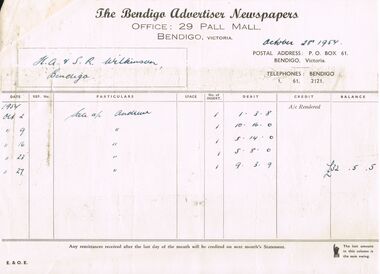 The Bendigo Advertiser Newspapers
OFFICE: 29 PALL MALL
BENDIGO, VICTORIA.
October 28 1954.
POSTAL ADDRESS: P.O. BOX 61.
BENDIGO, Victoria.
TELEPHONES: BENDIGO
1, 61, 2121.
H. A. & S. R. Wilkinson,
Bendigo
DATE REF. No. PARTICULARS SPACE No. of INSERT. DEBIT CREDIT BALANCE
1954 A/c Rendered
Oct 2 Sale a/c Andrew 1 1 . 3 . 8
" 9 " 1 10 . 16 . 0
" 16 " 1 5 . 14 . 0
" 23 " 1 5 . 8 . 0
" 27 " 1 9 . 3 . 9 £32 . 5 . 5
Any remittances received after the last day of the month will be credited on next month's Statement.
The last amount in this column is the sum owing.
E. & O. E.